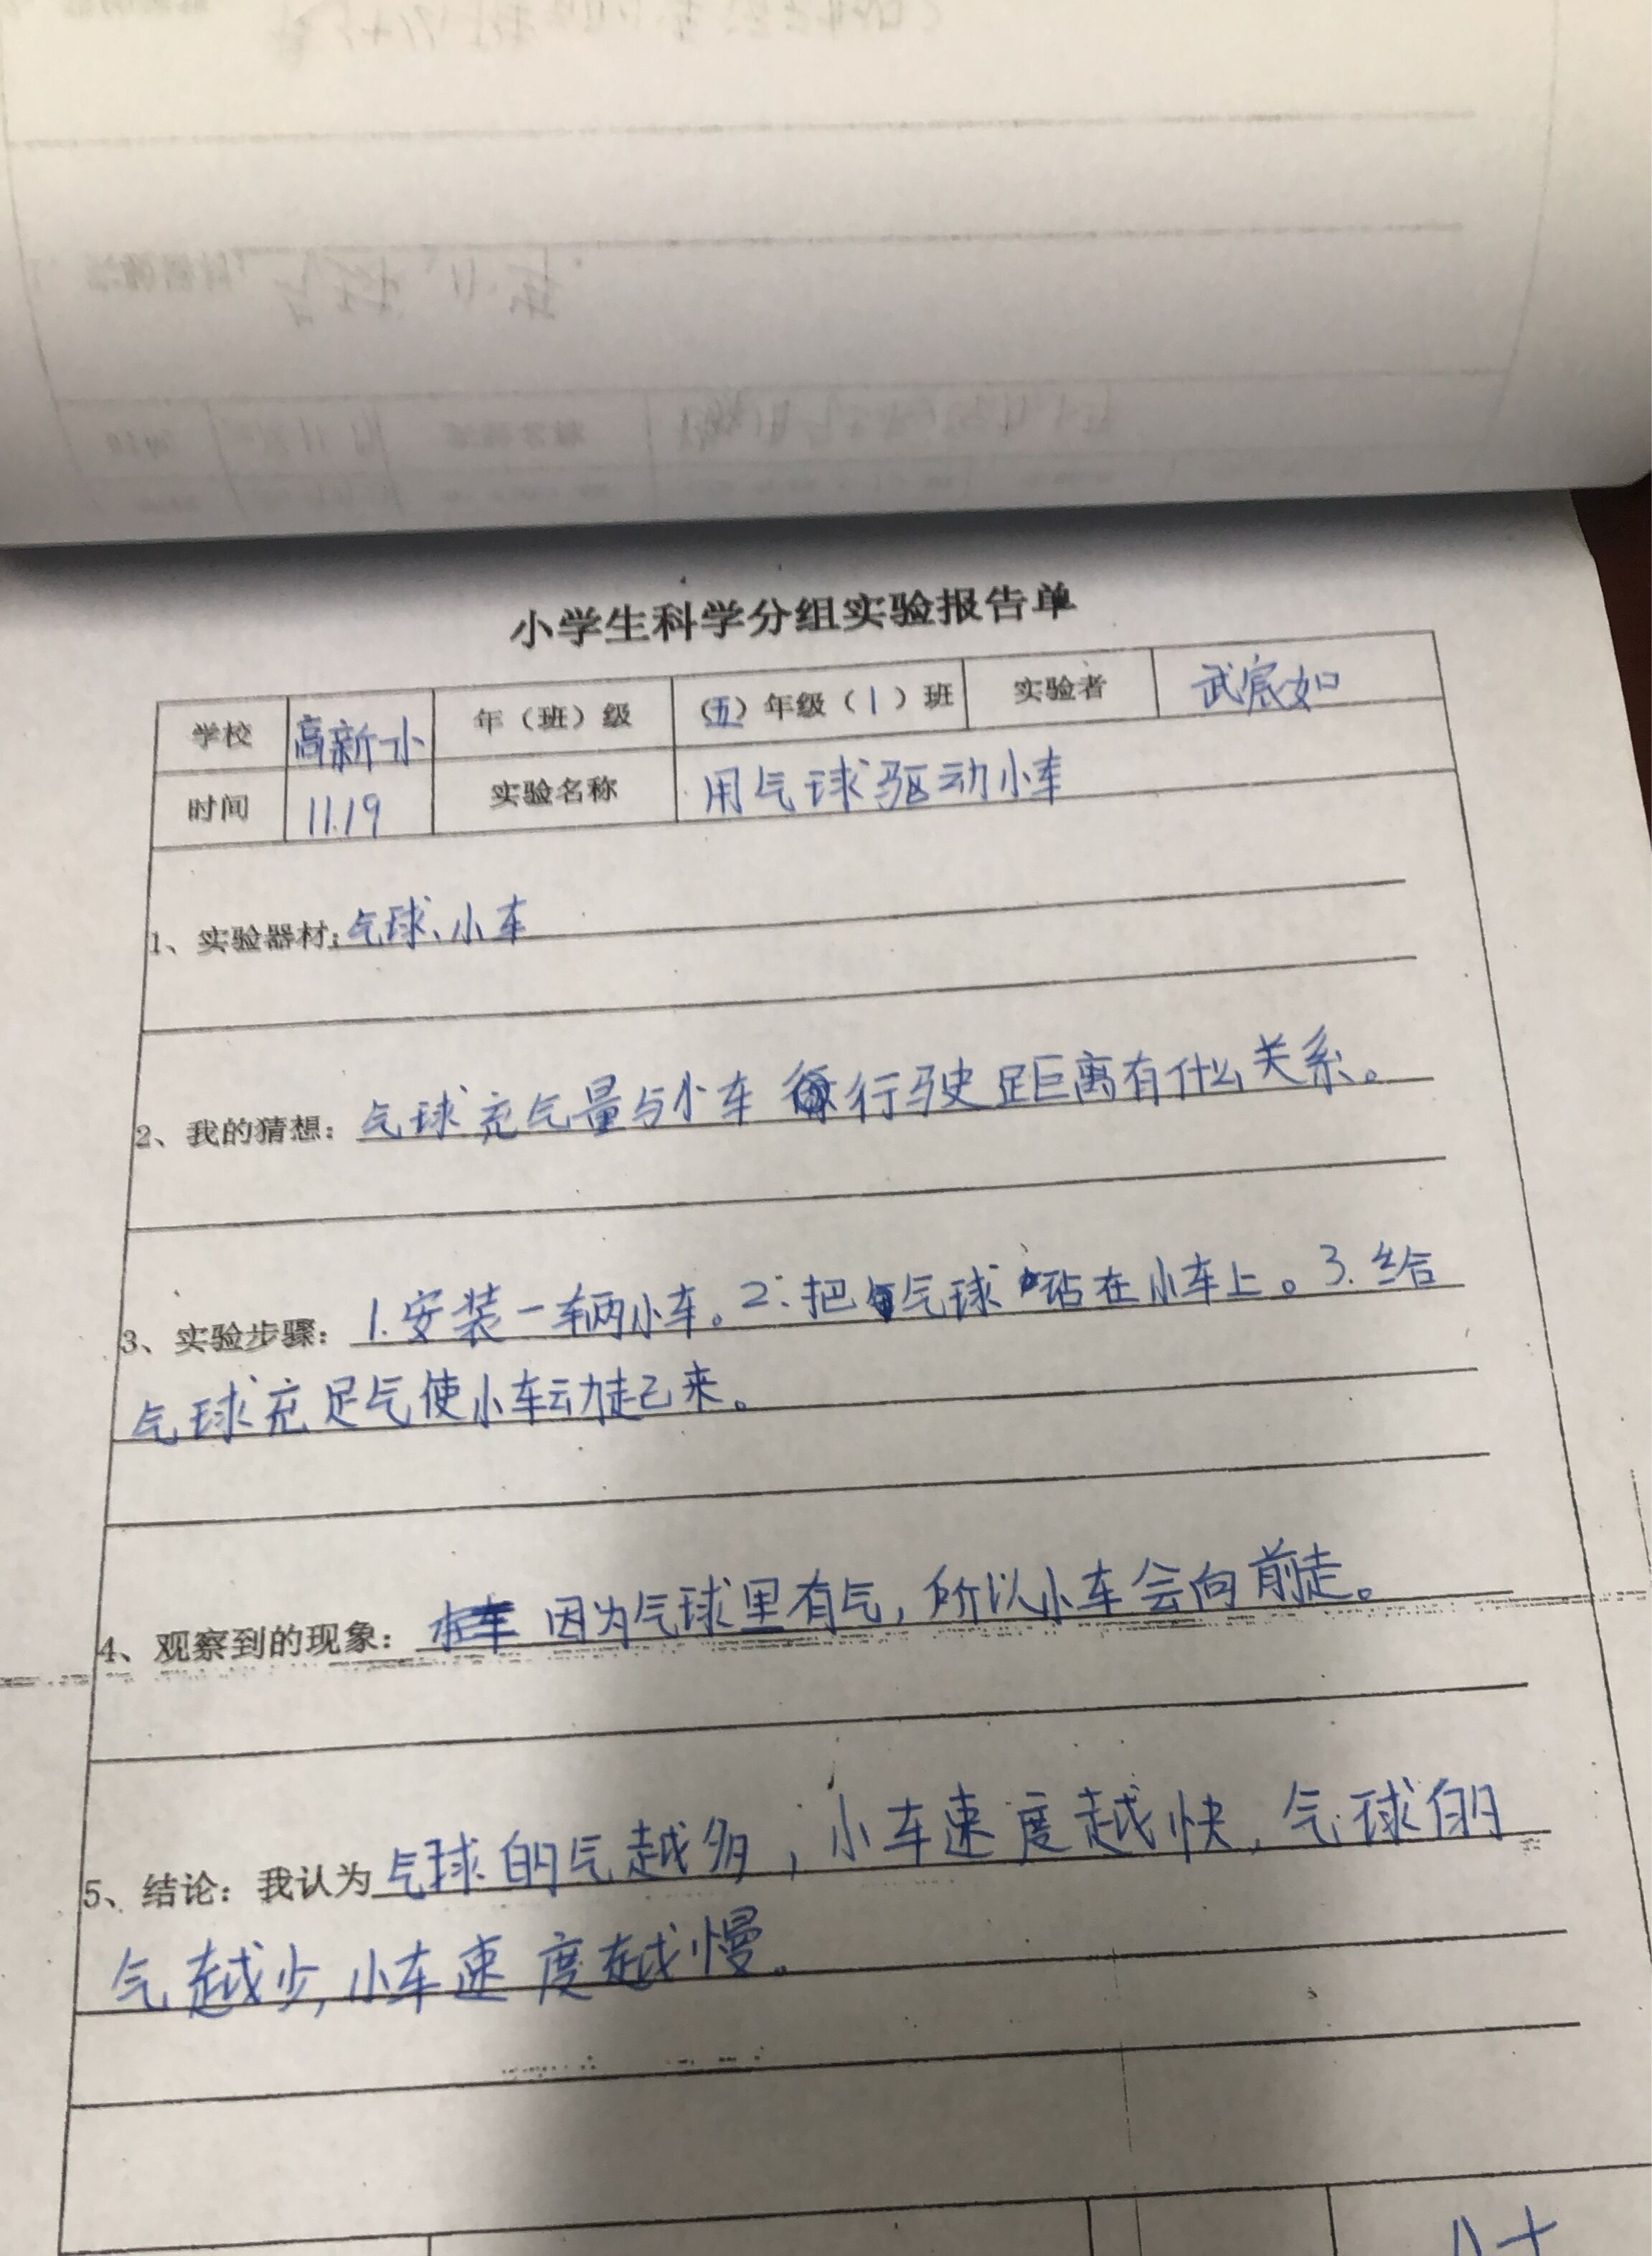 小学生科学分组实验报告单
学校 高新小 年（班）级 （五）年级（1）班 实验者 武宸如
时间 11.19 实验名称 用气球驱动小车
1、实验器材：气球、小车
2、我的猜想：气球充气量与小车行驶距离有什么关系。
3、实验步骤：1.安装一辆小车。2.把气球粘在小车上。3.给
气球充足气使小车动起来。
4、观察到的现象：因为气球里有气，所以小车会向前走。
5、结论：我认为气球的气越多，小车速度越快，气球的
气越少，小车速度越慢。